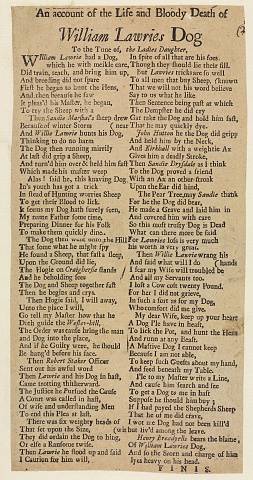 An account of the Life and Bloody Death of
William Lawries Dog
To the Tune of, the Ladies Daughter,
William Lawrie had a Dog,
which he with meikle care,
Did train, teach, and bring him up,
And breeding did not spare
First he began to hunt the Hens,
And then because he saw
It pleas'd his Master, he began,
To try the Sheep with a
Then Sandie Marshal's sheep drew
Because of winter Storm near
And Willie Lawrie hunts his Dog,
Thinking to do no harm
The Dog then running mirrily
At last did grip a Sheep,
And tumbl'd him over & held him fast
Which made his master weep
Alas! said he, this knaving Dog
In's youth has got a trick
In stead of Hunting worries Sheep
To get their Blood to lick.
It seems my Dog hath surely seen,
My name Father some time,
Preparing Dinner for his Folk
To make them quickly dine.
The Dog then went unto the Hill
That some what he might spy
He found a Sheep, that fast a sleep,
Upon the Ground did lie,
The Hogie on Craighorse stands
And he beholding sees
The Dog and Sheep together fast
Then he begins and cryes.
Then Hogie said, I will away,
Unto the place I will,
Go tell my Master how that he
Doth guide the Wester-hill,
The Order was cause bring the man
and Dog into the place,
And if he Guilty were, he should
Be hang'd before his face.
Then Robert Stoker Officer
Sent out his awful word
Then Lawrie and his Dog in hast,
Came trotting thitherward.
The Justice he Pursued the Cause
A Court was called in hast,
Of wife and understanding Men
To end this Plea at last.
There was six weighty heads of
That set upon the Size,
They did ordain the Dog to hing,
Or else a Ransome twise.
Then Lawrie he stood up and said
I Caution for him will,
In spite of all that are his foes
Though they should lie their fill.
but Lawries trickman so well
To all men that buy Sheep, known
That we will not his word believe
Say to us what he like
Then Sentence being past at which
The Dempster he did cry
Gat take the Dog and hold him fast,
That he may quickly dye.
John Hutton he the Dog did gripp
And held him by the Neck,
And Kirkhall with a weightie Ax
Given him a deadly stroke,
Then Sandie Drysdale as I think
To the Dog proved a friend
With an Ax an other stroak
Upon the Ear did hind,
The Poor Tree, may Sandie thank
For he the Dog did bear,
He made a Grave and laid him in
And covered him with care
So this most trusty Dog is Dead
What can there more be said
For Lawries loss is very much
his worth is very great.
Then Willie Lawrie wrang his
And said what will I do hands
I fear my Wife will troubled be
And all my Servants too.
I lost a Cow cost twenty Pound,
For her I did not grieve,
In such a sort as for my Dog,
When comfort did me give.
My dear Wife, keep up your heart
A Dog I'le have in heast,
To lick the Pot, and hunt the Hens
And runn at any Beast.
A Mastive Dog I cannot keep
Because I am not able,
To keep such Guests about my hand,
And feed beneath my Table.
I'le to my Master write a Line,
And cause him search and see
To get a Dog to me in hast
Suppose he should him buy
If I had payed the Shepherds Sheep
That he of me did crave,
I wot one Dog had not been kill'd
but liv'd among the leave.
Henry Broadyetts bears the blame,
Of William Lawries Dog,
And so the Scorn and change of him
lyes heavy on his head.
FINIS.